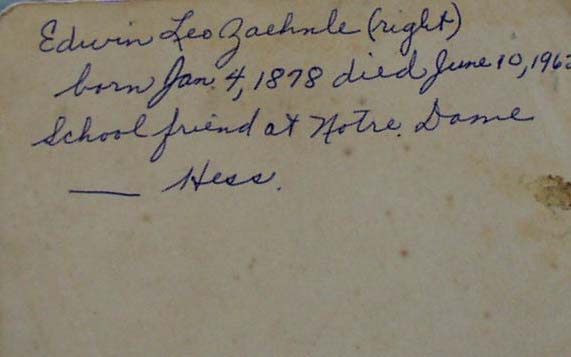 Edwin Leo Zaehnle (right)
born Jan. 4, 1878 died June 10, 196
School friend at Notre Dame
—— Hess.